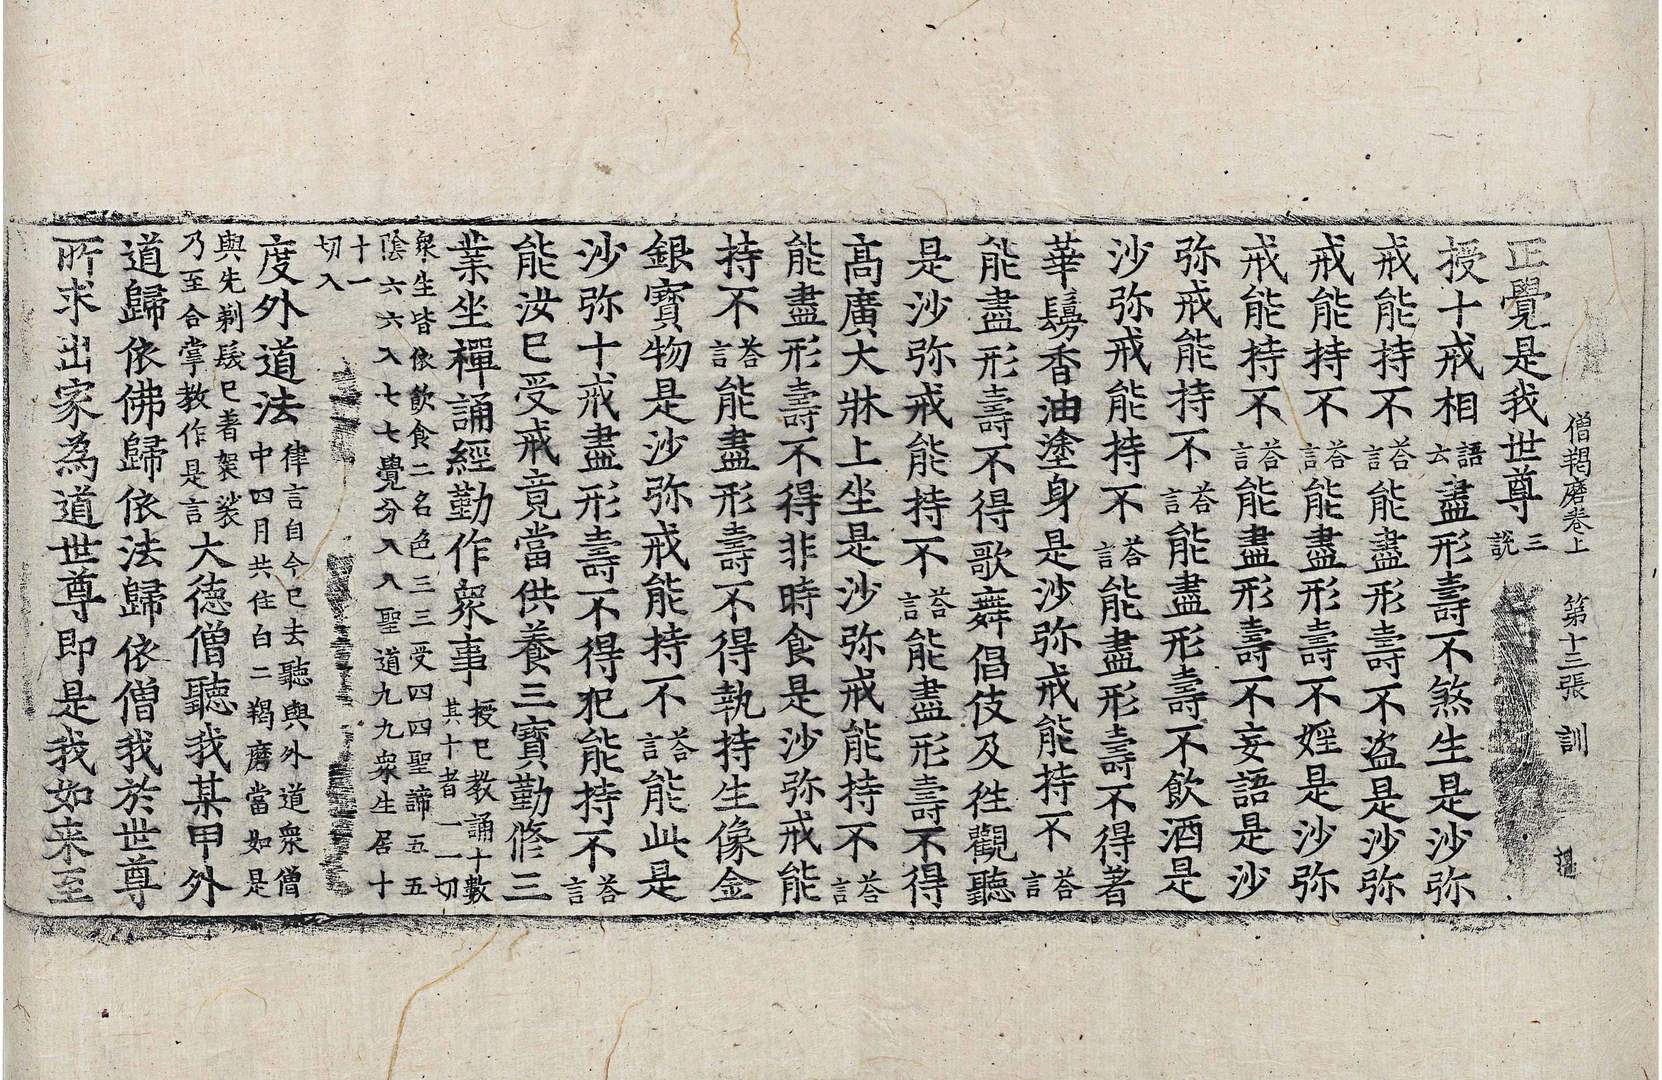 僧羯磨卷上 第十三張 訓
正覺是我世尊三說
授十戒相語云盡形壽不煞生是沙弥
戒能持不荅言能盡形壽不盗是沙弥
戒能持不荅言能盡形壽不婬是沙弥
戒能持不荅言能盡形壽不妄語是沙
弥戒能持不荅言能盡形壽不飲酒是
沙弥戒能持不荅言能盡形壽不得著
華鬘香油塗身是沙弥戒能持不荅言
能盡形壽不得歌舞倡伎及往觀聽
是沙弥戒能持不荅言能盡形壽不得
髙廣大牀上坐是沙弥戒能持不荅言
能盡形壽不得非時食是沙弥戒能
持不荅言能盡形壽不得執持生像金
銀寶物是沙弥戒能持不荅言能此是
沙弥十戒盡形壽不得犯能持不荅言
能汝已受戒竟當供養三寶勤修三
業坐禪誦經勤作衆事授已教誦十數其十者一一切
衆生皆依飲食二名色三三受四四聖諦五五
陰六六入七七覺分八八聖道九九衆生居十
十一
切入
度外道法律言自今已去聽與外道衆僧中四月共住白二羯磨當如是
與先剃髮已著袈裟乃至合掌教作是言大德僧聽我某甲外
道歸依佛歸依法歸依僧我於世尊
所求出家為道世尊即是我如来至